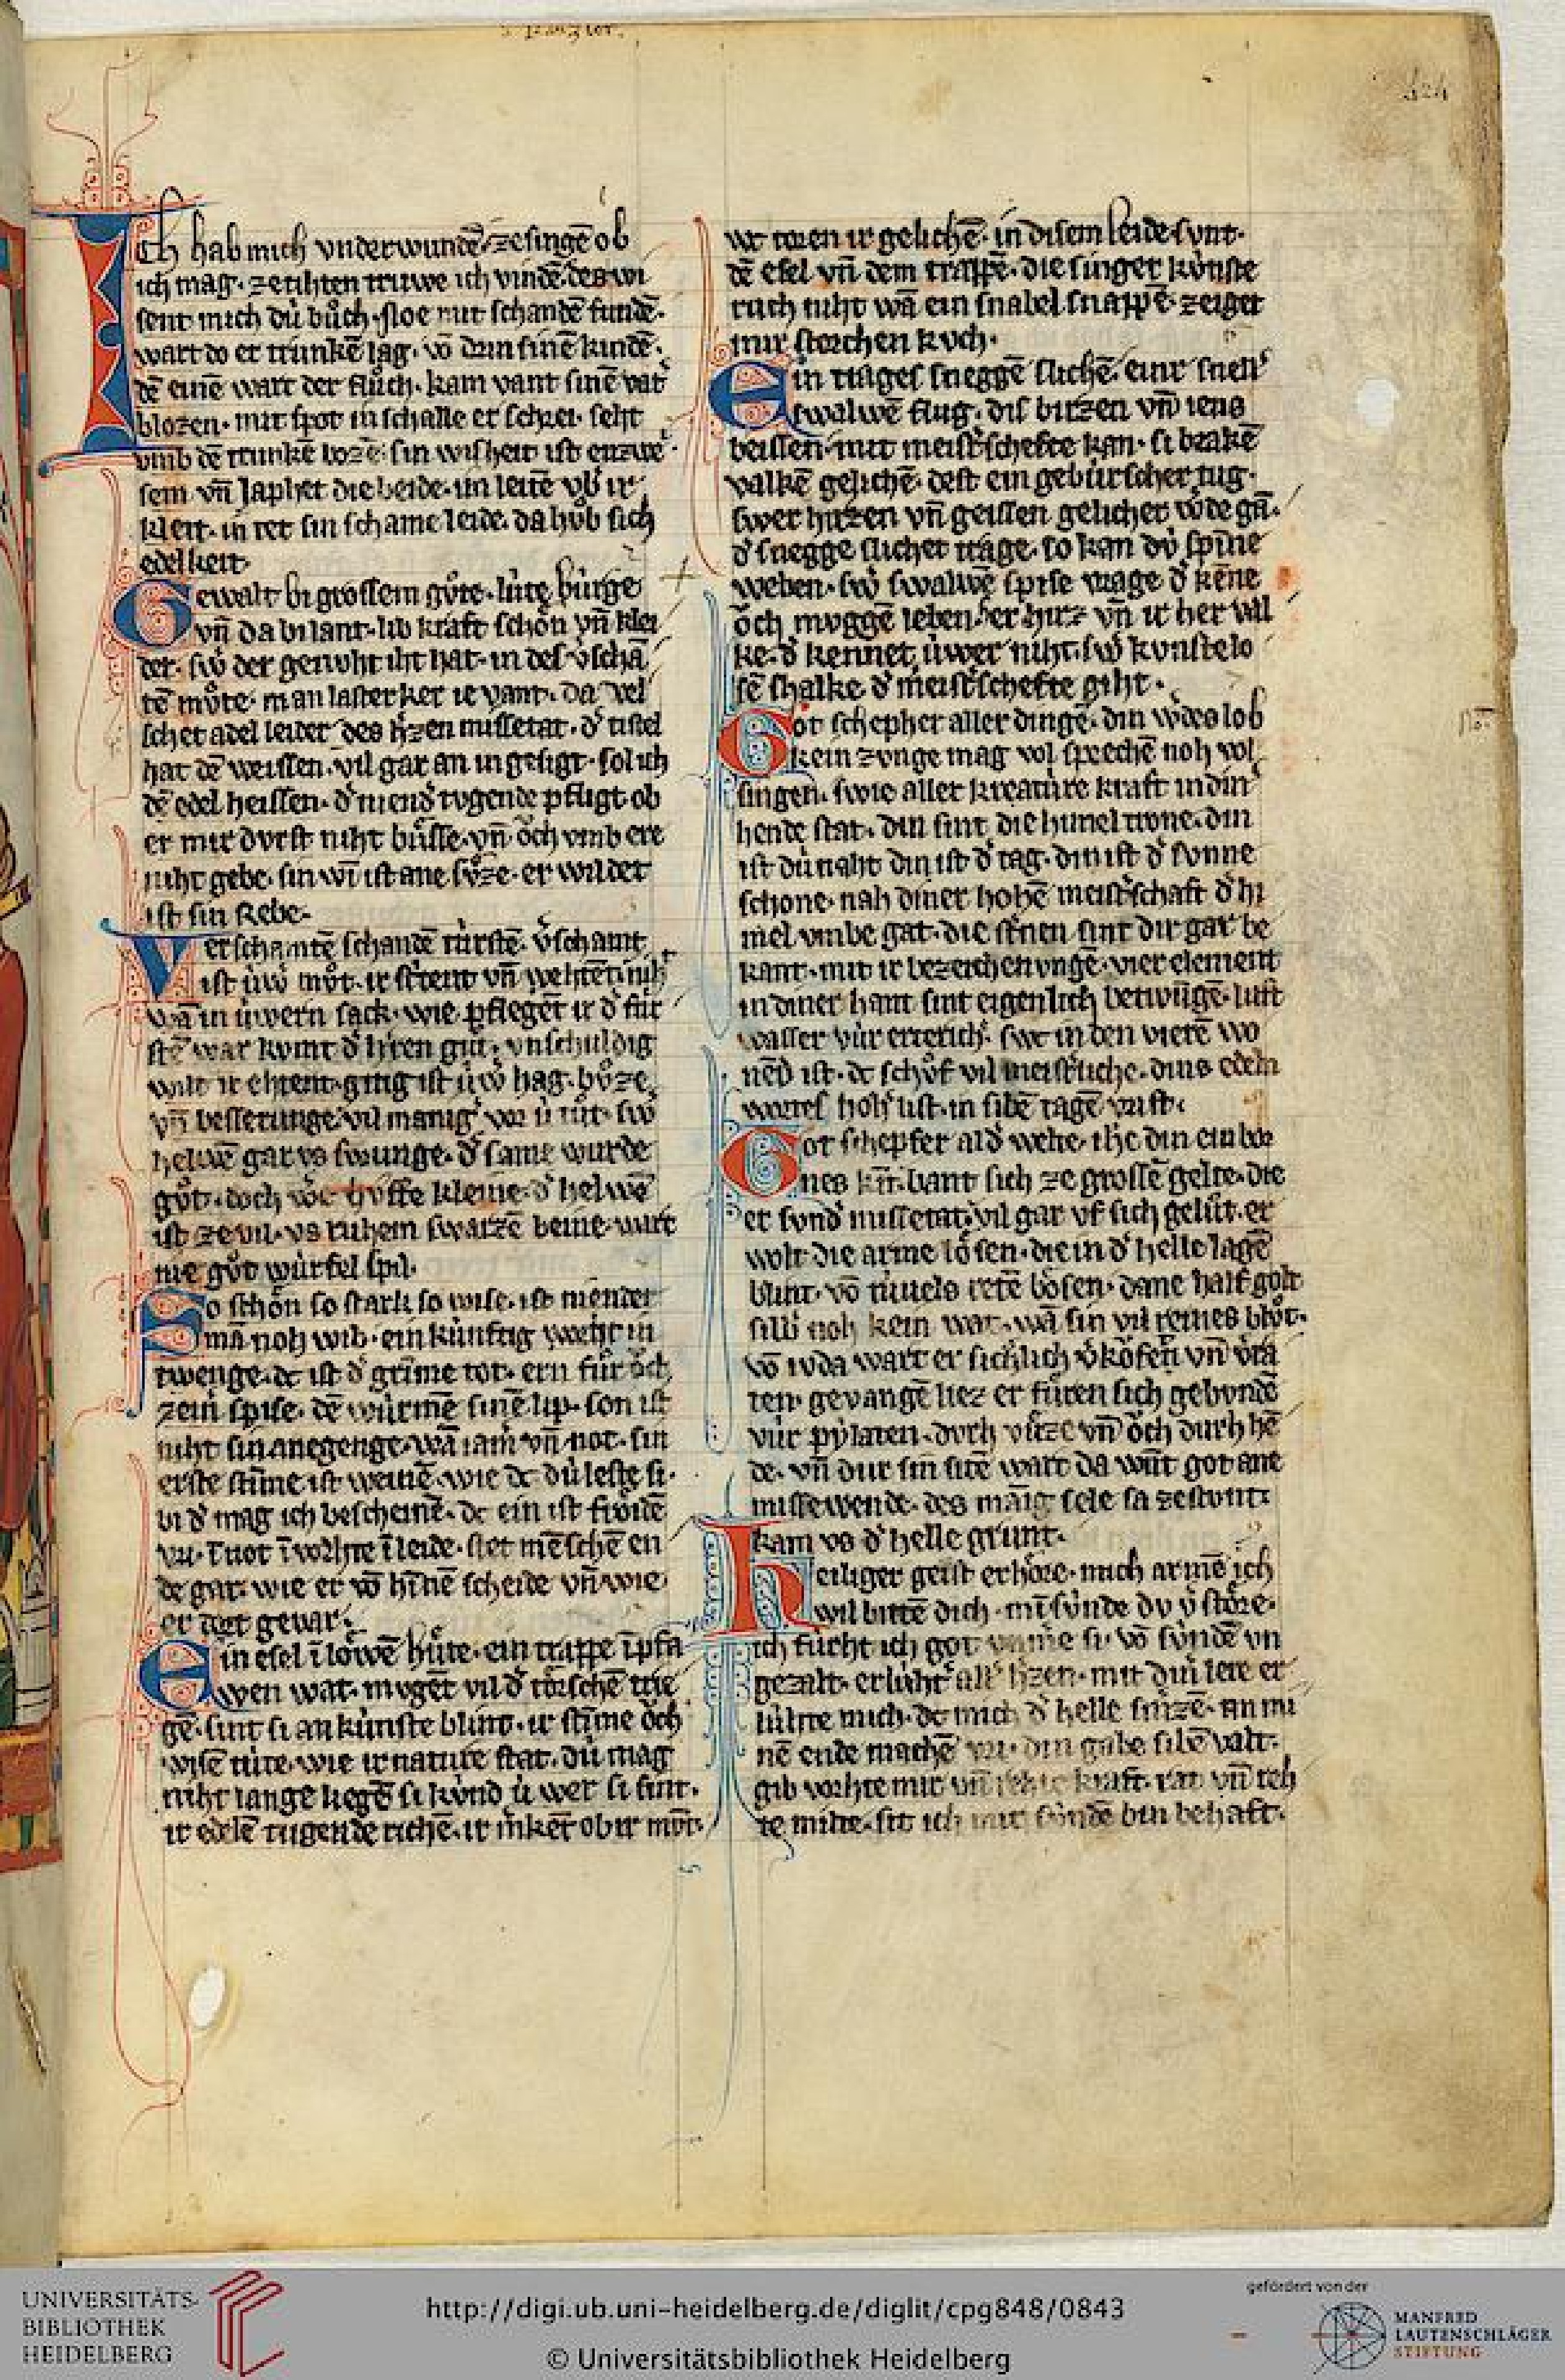 424
Ich hab mich vnderwundē. ze singē ob
ich mag. ze tihten truwe ich vindē. des wi
sent mich dů bůch. Noe mit schandē fundē.
wart do er trunkē lag. vō drin sinē kindē.
dē einē wart der flůch. kam vant sinē vat̄
blozen. mit spot in schalle er schrei. seht
vmb dē trunkē bozē. sin wisheit ist enzwei.
sem vn̄ Japhet die beide. im leitē vb̄ ir
kleit. in tet sin schame leide. da hůb sich
edelkeit.
Gewalt bi grossem gůte. lúte búrge
vn̄ da bi lant. lib kraft schön vn̄ klei
der. sw̄ der genuht iht hat. in des v̄schā
tē můte. man laster ket ie vant. da vel
schet adel leider des h̄zen missetat. d̄ tistel
hat dē weissen. vil gar an in gesigt. sol ich
dē edel heissen. d̄ niend̄ tvgende pfligt. ob
er mir dvrst niht bůsse. vn̄ öch vmb ere
niht gebe. sin wī ist ane sůze. er wildet
ist sin Rebe.
Verschamtē schandē túrste. v̄schamt
ist úw̄ můt. ir stritent vn̄ vehtēt niht
wā in úwern sack. wie pflegēt ir d̄ fúr
stē war kvmt d̄ h̄ren gůt. vnschuldig
wilt ir ehtent. ging ist úw̄ hag. bůze
vn̄ besserunge. vil maniḡ vor ú tůt. sw̄
helwē gar vs swunge. d̄ same wurde
gůt. doch wc hvffe kleine. d̄ helwē
ist ze vil. vs ruhem swarzē beine. wart
nie gůt wúrfel spil.
So schön so stark so wise. ist niender
mā noh wib. ein kúnftig vorht in
twenge. dc ist d̄ grīme tot. ern fúr öch
zeim spise. dē wúrmē sinē lip. son ist
niht sin anegenge. wā iam̄ vn̄ not. sin
erste stīme ist weinē. wie dc dú leste si.
bi d̄ mag ich bescheinē. dc ein ist frŏidē
vri. ī not ī vorhte ī leide. stet mēschē en
de gar. wie er vō hīnē scheide vn̄ wie
er dort gevar.
Ein esel ī lŏwē húte. ein trappe ī pfa
wen wat. mvgēt vil d̄ tŏrschē trie
gē. sint si an kúnste blint. ir stīme öch
wisē túte. wie ir nature stat. dú mag
niht lange liegē si kúnd̄ ú wer si sint.
ir edelē tugende richē. ir m̄kēt ob ir můt.
wc toren ir gelichē. in disem leide sunt.
dē esel vn̄ dem trappē. die singer kúnste
rich niht wā ein snabel snappē. zeiget
mir storchen kvch.
Ein trages sneggē slichē. einr snell̄
swalwē flug. dis birzen vn̄ iens
beissen. mit meist̄schefte kan. si brakē
valkē gelichē. dest ein gebúrscher tug.
swer hirzen vn̄ geissen gelicher w̄de gā.
d̄ snegge slichet trage. so kan dú spīne
weben. sw̄ swalwē spise vrage d̄ kēne
öch mvggē leben. her hirz vn̄ ir her val
ke. d̄ kennet úwer niht. sw̄ kvnstelo
sē schalke d̄ meist̄schefte giht.
Got schepher aller dinge. din w̄des lob
kein zvnge mag vol sprechē noh vol
singen. swie aller kreatúre kraft in din̄
hende stat. din sint die himel trone. din
ist dú naht din ist d̄ tag. din ist d̄ svnne
schone. nah diner hohē meist̄schaft d̄ hi
mel vmbe gat. die st̄nen sint dir gar be
kant. mit ir bezeichenvnge. vier element
in diner hant sint eigenlich betwūgē. luft
wasser vúr erterich. swc in den vierē wo
nēd ist. dc schůf vil meist̄liche. dins edeln
wortes hoh̄ list. in sibē tagē vrist.
Got schepfer al d̄ welte. ihc din ein bor
nes kīt. bant sich ze grossē gelte. die
er svnd̄ missetat. vil gar vf sich gelůt. er
wolt die arme lŏsen. die in d̄ helle lagē
blint. vō túuels retē bŏsen. dane half golt
silb̄ noh kein wat. wā sin vil reines blůt.
vō ivda wart er sich̄lich v̄kŏfet vn̄ v̄ra
ten. gevangē liez er fúren sich gebvndē
vúr pylaten. dvrh vůze vn̄ öch durh hē
de. vn̄ dur sin sitē wart da wūt got ane
missewende. des māig sele sa ze stvnt
kam vs d̄ helle grunt.
Heiliger geist erhŏre. mich armē ich
wil bittē dich. mī súnde dv v̄stŏre.
ich fúrht ich got
gezalt. erlúht̄ all̄ h̄zen. mit din̄ lere er
lúhte mich. dc mich d̄ helle smzē. an mi
nē ende machē vri. din gabe sibē valt.
gib vorhte mir vn̄ kraft. rat vn̄ reh
te milte. sit ich mit súndē bin behaft.
UNIVERSITÄTS-
BIBLIOTHEK
HEIDELBERG
http://digi.ub.uni-heidelberg.de/diglit/cpg848/0843
© Universitätsbibliothek Heidelberg
gefördert von der
MANFRED
LAUTENSCHLÄGER
STIFTUNG